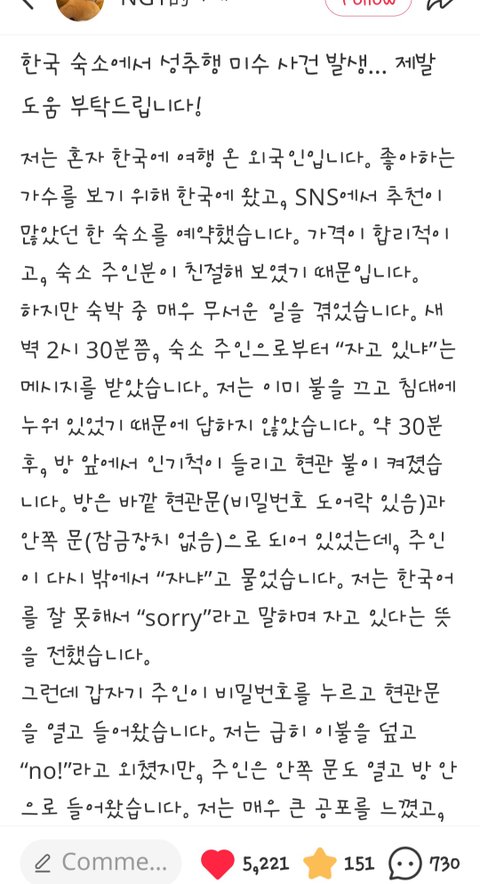 Follow
한국 숙소에서 성추행 미수 사건 발생... 제발
도움 부탁드립니다!
저는 혼자 한국에 여행 온 외국인입니다. 좋아하는
가수를 보기 위해 한국에 왔고, SNS에서 추천이
많았던 한 숙소를 예약했습니다. 가격이 합리적이
고, 숙소 주인분이 친절해 보였기 때문입니다.
하지만 숙박 중 매우 무서운 일을 겪었습니다. 새
벽 2시 30분쯤, 숙소 주인으로부터 “자고 있냐”는
메시지를 받았습니다. 저는 이미 불을 끄고 침대에
누워 있었기 때문에 답하지 않았습니다. 약 30분
후, 방 앞에서 인기척이 들리고 현관 불이 켜졌습
니다. 방은 바깥 현관문(비밀번호 도어락 있음)과
안쪽 문(잠금장치 없음)으로 되어 있었는데, 주인
이 다시 밖에서 “자냐”고 물었습니다. 저는 한국어
를 잘 못해서 “sorry”라고 말하며 자고 있다는 뜻
을 전했습니다.
그런데 갑자기 주인이 비밀번호를 누르고 현관문
을 열고 들어왔습니다. 저는 급히 이불을 덮고
“no!”라고 외쳤지만, 주인은 안쪽 문도 열고 방 안
으로 들어왔습니다. 저는 매우 큰 공포를 느꼈고,
Comme... 5,221 151 730